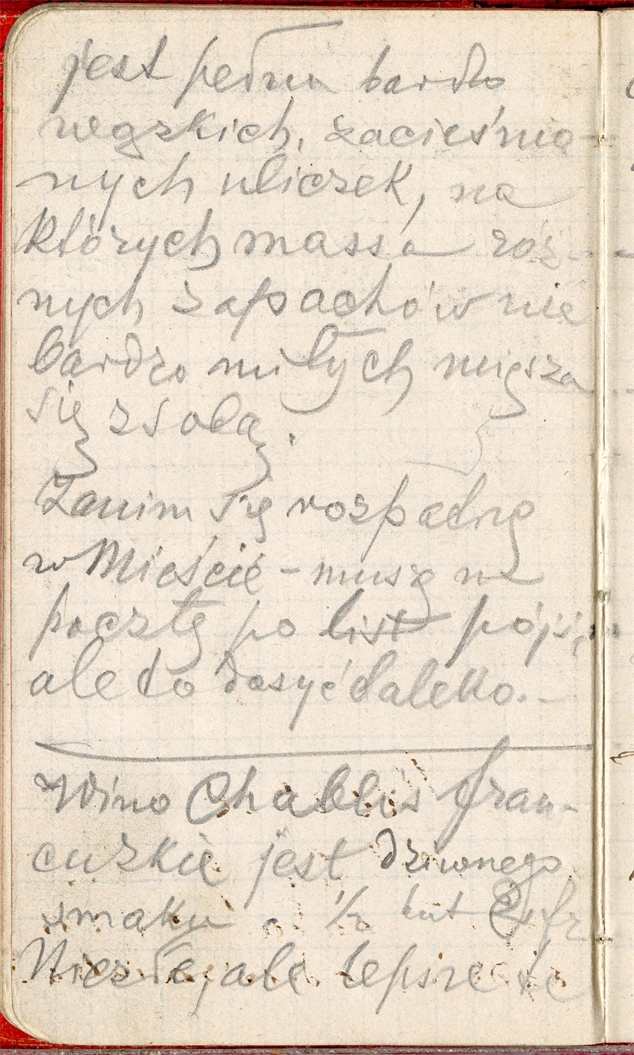 jest pełna bardzo
wązkich, zacieśnio-
nych uliczek, na
których massa róż-
nych zapachów nie
bardzo miłych miesza
się z sobą.
Zanim się rozpadnę
w Mieście - muszę na
pocztę po list pójść,
ale to dosyć daleko. -
Wino Chablis fran-
cuzkie jest dziwnego
smaku. ½ but fr
Niezłe, ale lepsze